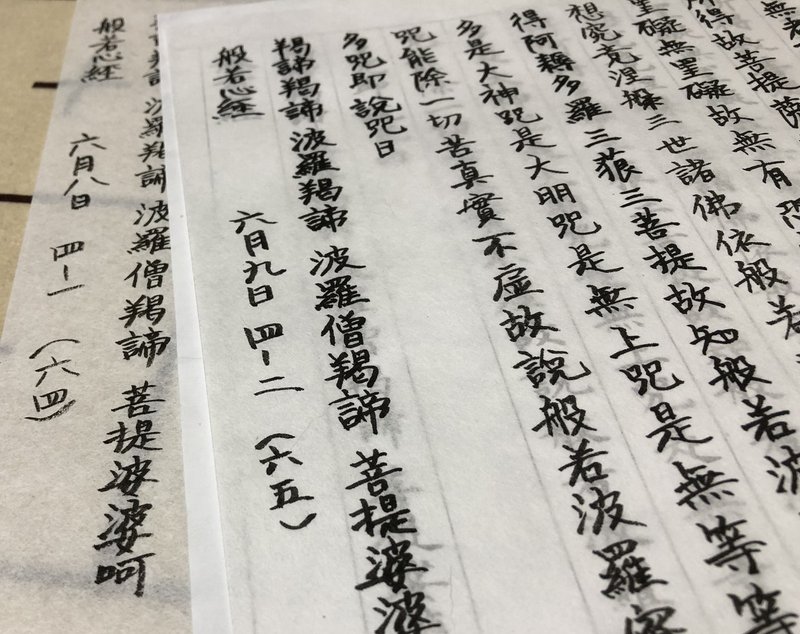 無老
所得故菩提薩
罣礙無罣礙故無有恐
想究竟涅槃三世諸佛依般若
得阿耨多羅三藐三菩提故知般若波
多是大神咒是大明咒是無上咒是無等等
咒能除一切苦真實不虛故說般若波羅蜜
多咒即說咒曰
羯諦羯諦 波羅羯諦 波羅僧羯諦 菩提婆婆
般若心經 六月九日 四-二 (六五)
羯諦 波羅羯諦 波羅僧羯諦 菩提婆婆呵
般若心經 六月八日 四-一 (六四)